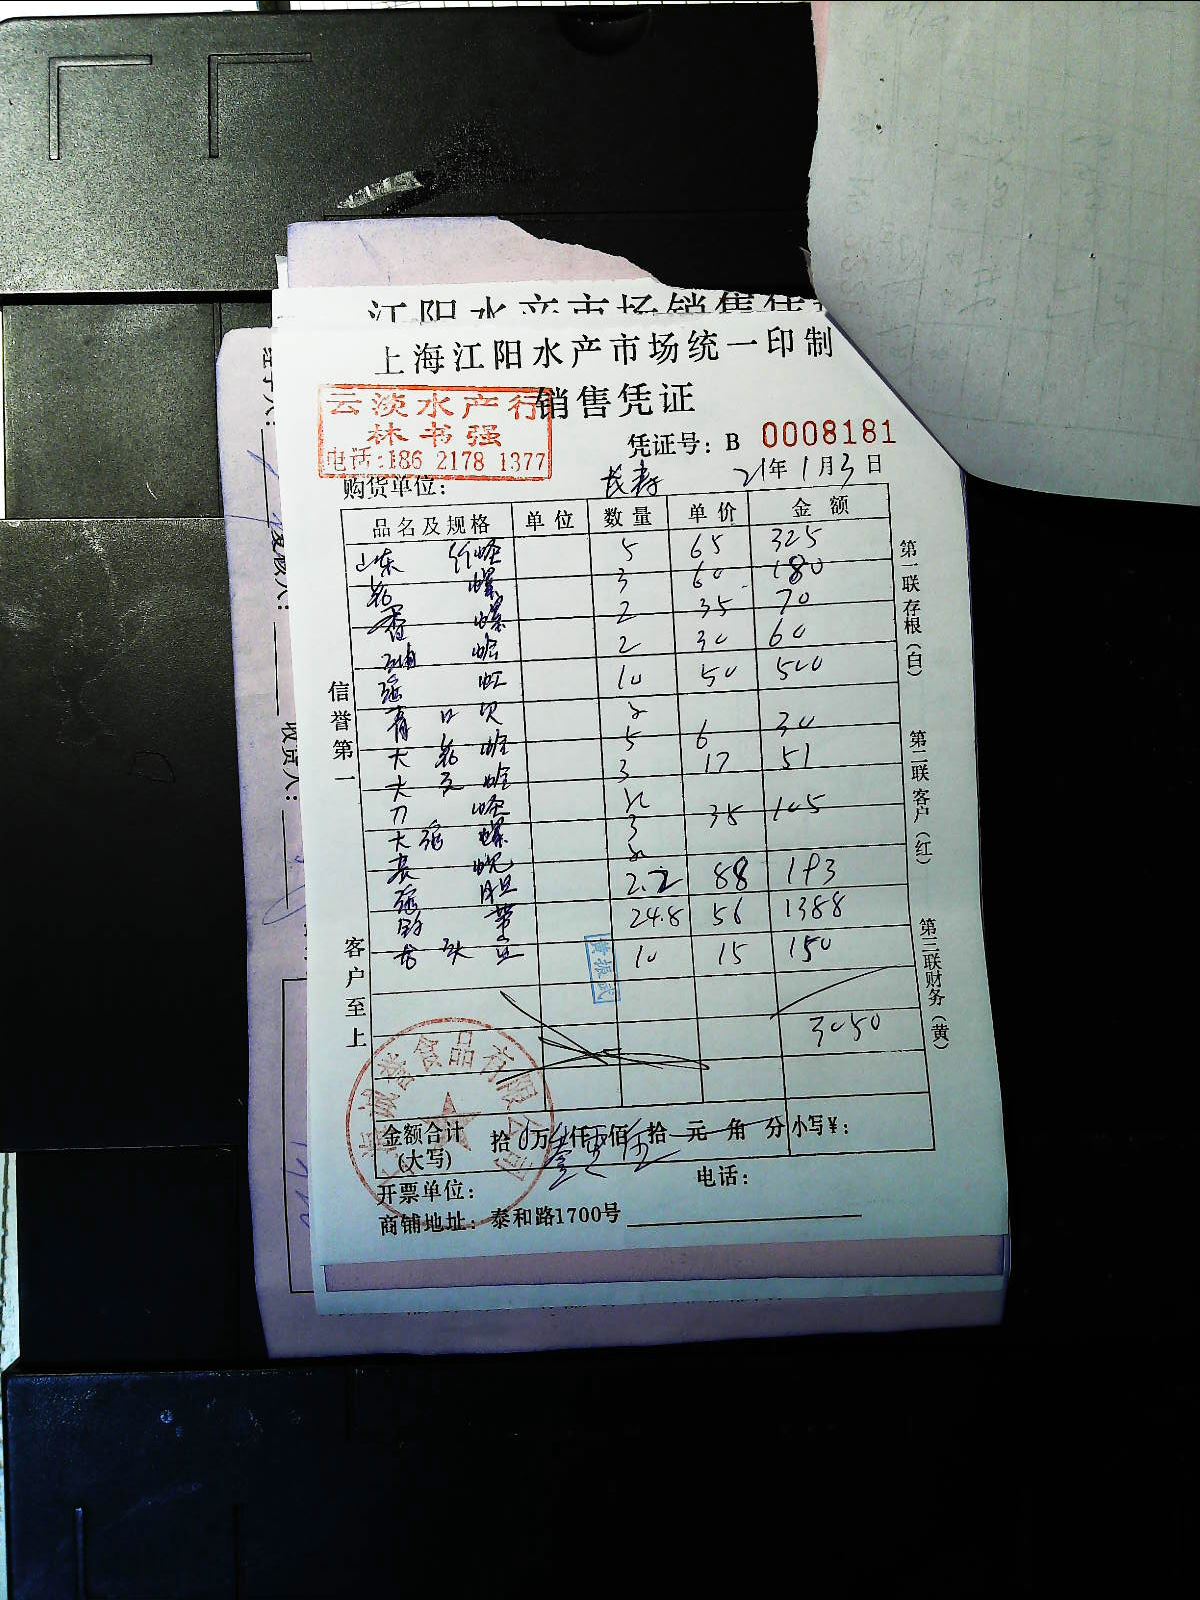 江阳水产市场销售凭证
上海江阳水产市场统一印制
销售凭证
云淡水产行
林书强
电话:186 2178 1377
凭证号: B 0008181
购货单位: 长寿 21年1月3日
品名及规格 单位 数量 单价 金额
山东 蛏 5 65 325
花 螺 3 60 180
香 螺 2 35 70
油 蛤 2 30 60
虹 10 50 500
青口贝 2
大花蛤 5 6 30
大 蛤 3 17 51
刀 蛏 2
大 螺 3 35 105
2
胆 2.2 88 193
带 24.8 56 1388
龙头 10 15 150
3050
金额合计(大写) 拾 万 仟 佰 拾 元 角 分 小写¥:
开票单位: 电话:
商铺地址: 泰和路1700号
信誉第一
客户至上
第一联存根(白)
第二联客户(红)
第三联财务(黄)
诚誉食品有限公司
收货人: